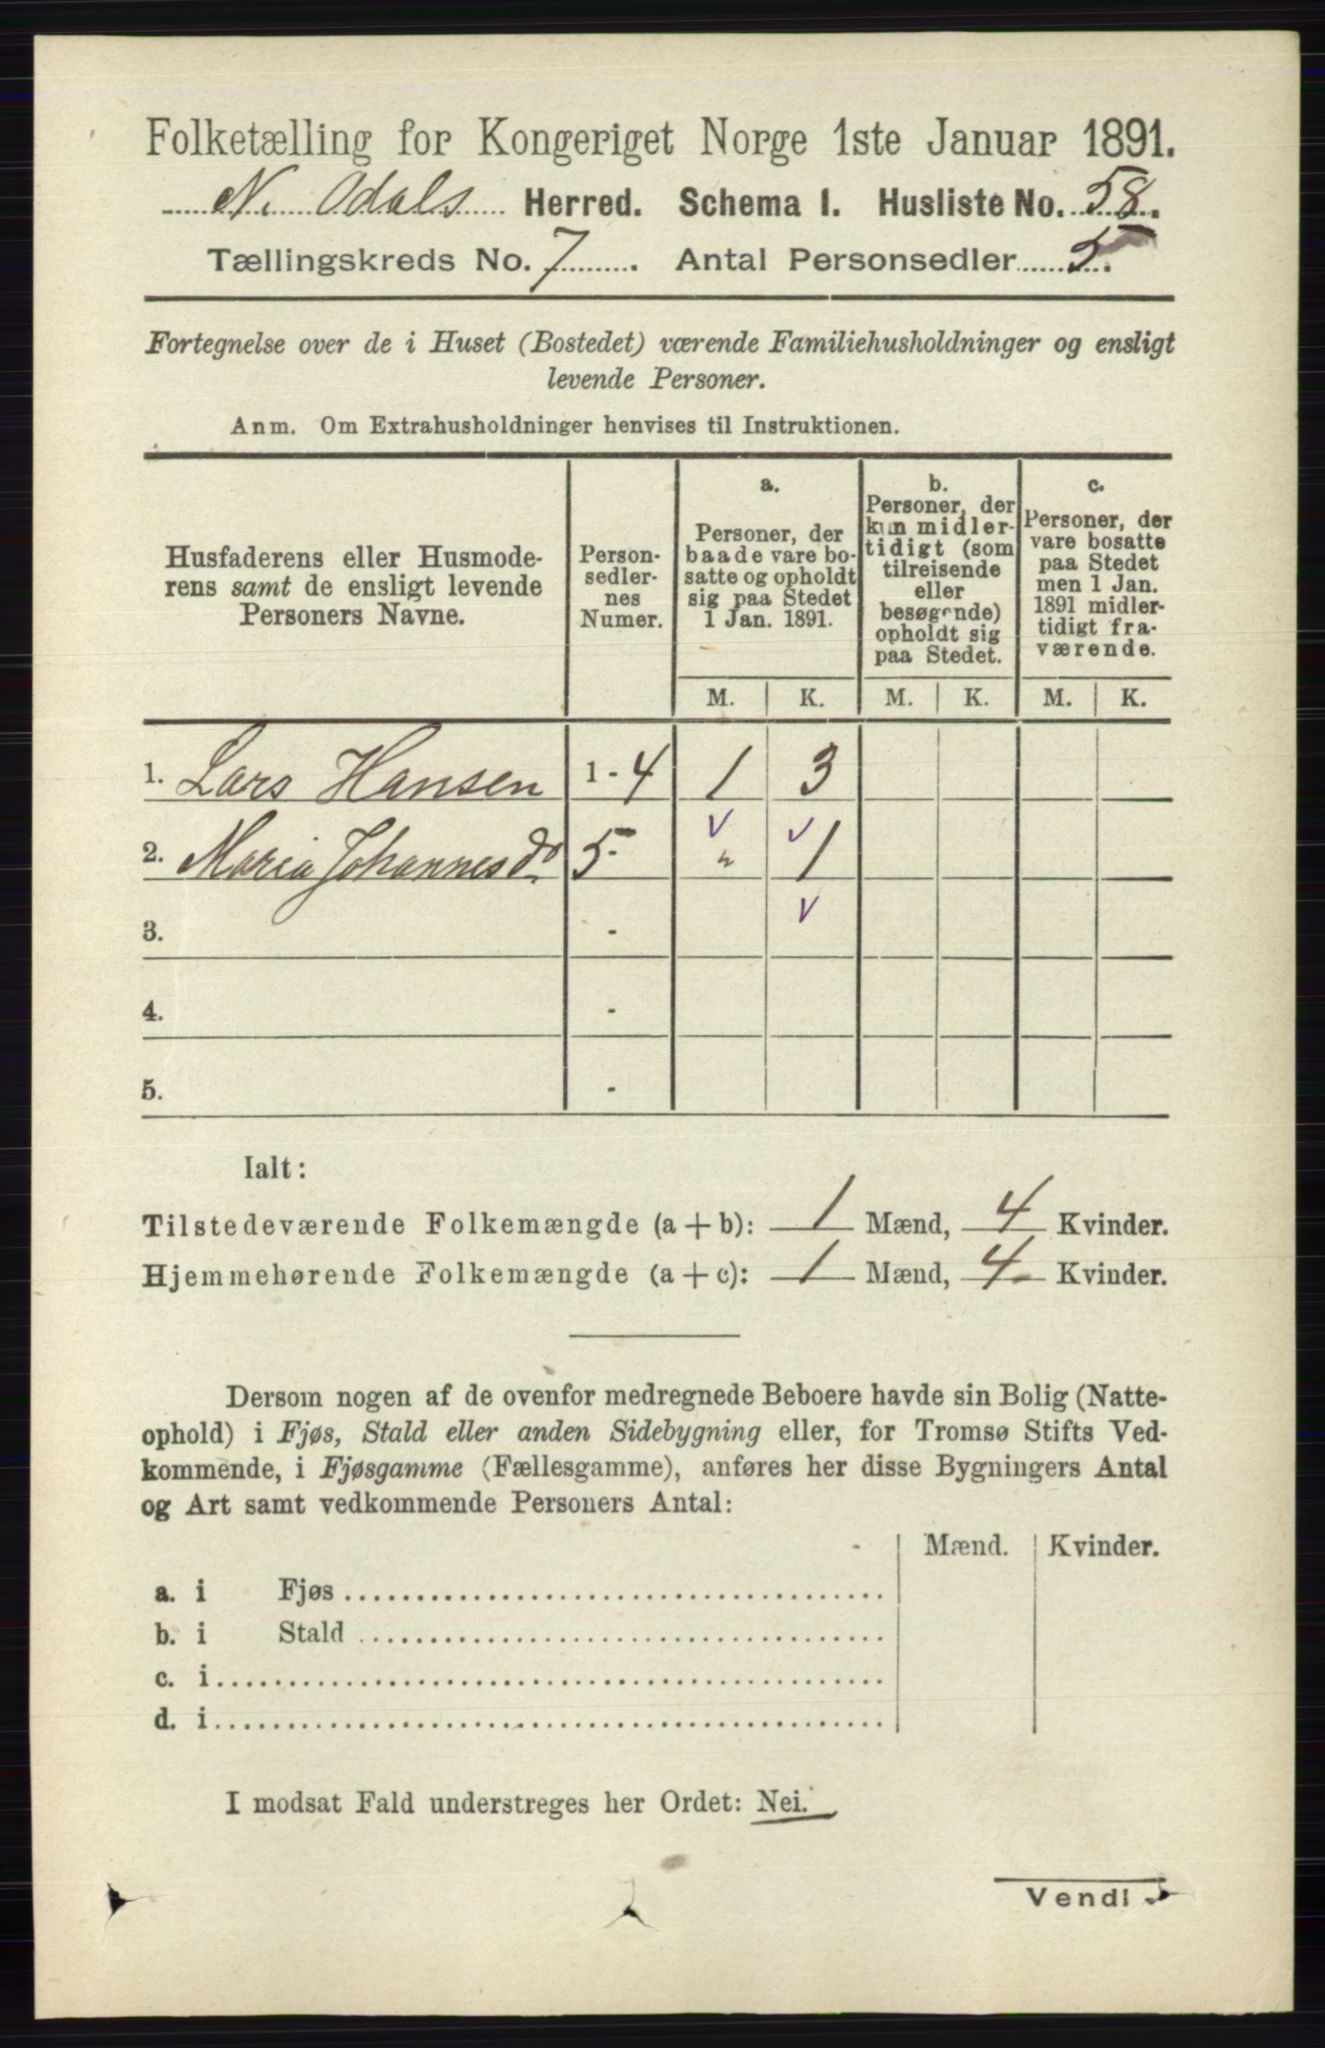 Folketælling for Kongeriget Norge 1ste Januar 1891.
N. Odals Herred. Schema 1. Husliste No. 58.
Tællingskreds No. 7. Antal Personsedler 5.
Fortegnelse over de i Huset (Bostedet) værende Familiehusholdninger og ensligt
levende Personer.
Anm. Om Extrahusholdninger henvises til Instruktionen.
Husfaderens eller Husmode-
rens samt de ensligt levende
Personers Navne.
Person-
sedler-
nes
Numer.
a.
Personer, der
baade vare bo-
satte og opholdt
sig paa Stedet
1 Jan. 1891.
b.
Personer, der
kun midler-
tidigt (som
tilreisende
eller
besøgende)
opholdt sig
paa Stedet.
c.
Personer, der
vare bosatte
paa Stedet
men 1 Jan.
1891 midler-
tidigt fra-
værende.
M. K. M. K. M. K.
1. Lars Hansen 1 - 4 1 3
2. Maria Johannesd. 5 - " 1
3. -
4. -
5. -
Ialt:
Tilstedeværende Folkemængde (a + b): 1 Mænd, 4 Kvinder.
Hjemmehørende Folkemængde (a + c): 1 Mænd, 4 Kvinder.
Dersom nogen af de ovenfor medregnede Beboere havde sin Bolig (Natte-
ophold) i Fjøs, Stald eller anden Sidebygning eller, for Tromsø Stifts Ved-
kommende, i Fjøsgamme (Fællesgamme), anføres her disse Bygningers Antal
og Art samt vedkommende Personers Antal:
Mænd. Kvinder.
a. i Fjøs
b. i Stald
c. i
d. i
I modsat Fald understreges her Ordet: Nei.
Vend!